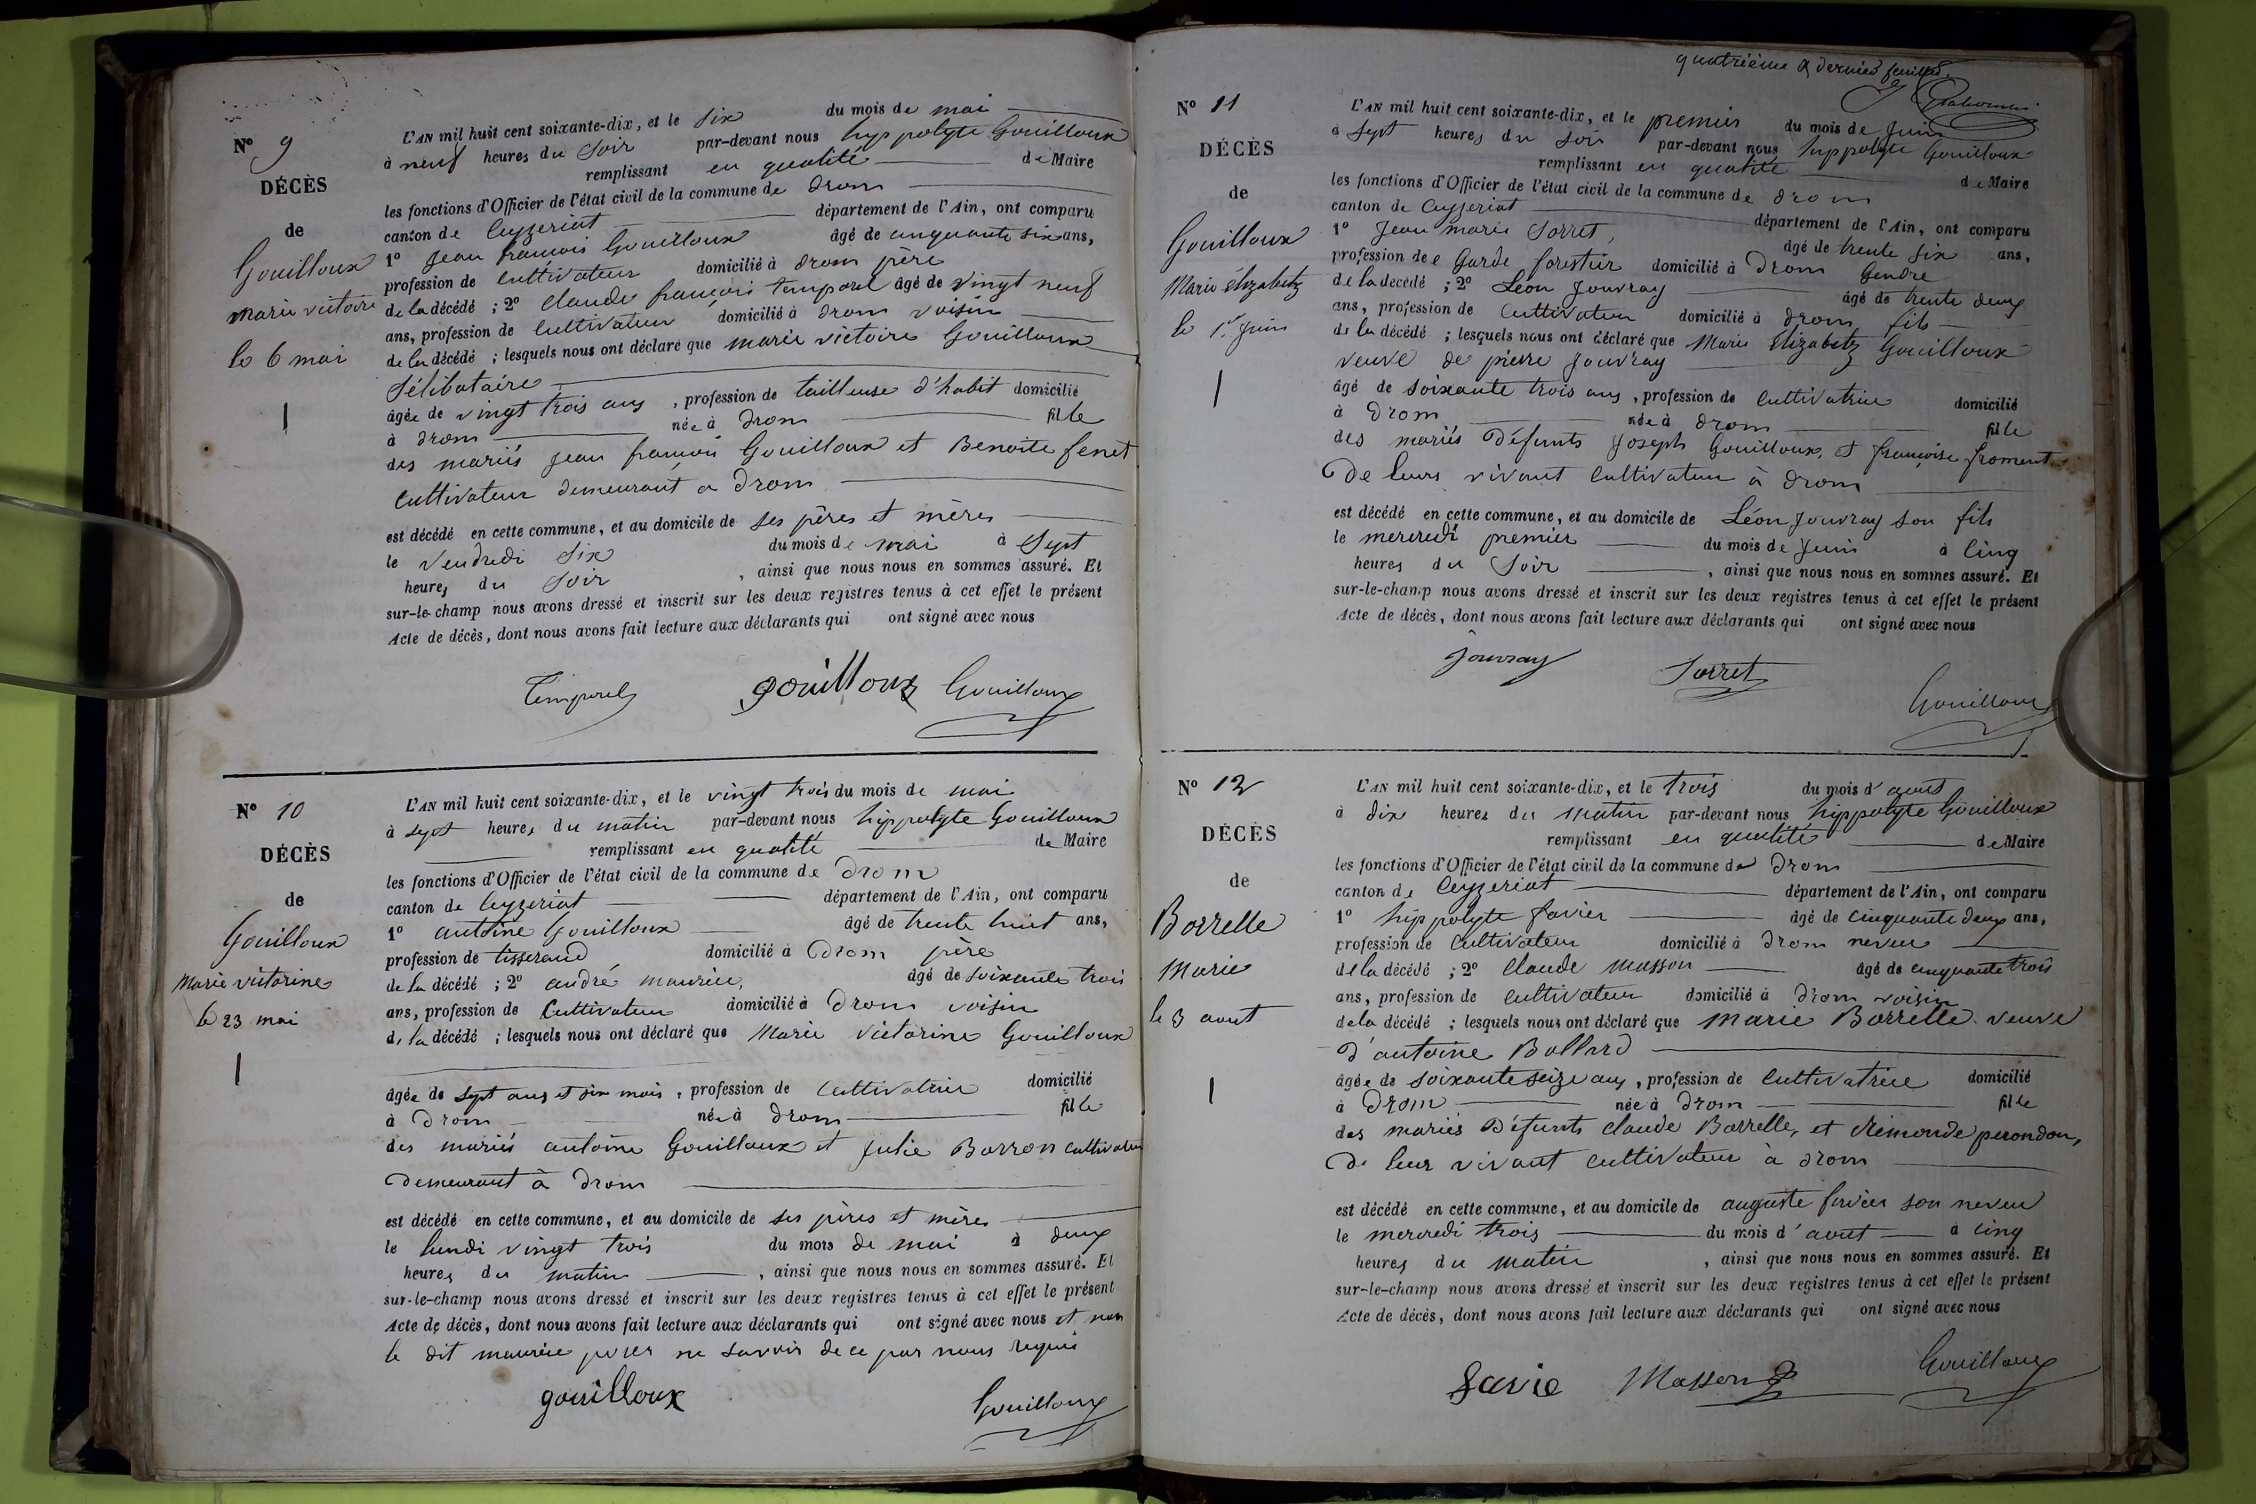 N° 9
DÉCÈS
de
Gouilloux
Marie victoire
le 6 mai
L'AN mil huit cent soixante-dix, et le six du mois de mai
à neuf heures du soir par-devant nous hyppolyte Gouilloux
remplissant en qualité de Maire
les fonctions d'Officier de l'état civil de la commune de drom
canton de Ceyzeriat département de l'Ain, ont comparu
1° Jean françois Gouilloux âgé de cinquante six ans,
profession de cultivateur domicilié à drom père
de la décédé ; 2° claude françois temporel âgé de vingt neuf
ans, profession de Cultivateur domicilié à drom voisin
de la décédé ; lesquels nous ont déclaré que marie victoire Gouilloux
Sélibataire
âgée de vingt trois ans, profession de tailleuse d'habit domicilié
à drom née à drom fille
des mariés jean françois Gouilloux et Benoite fenet
cultivateur demeurant a drom
est décédé en cette commune, et au domicile de ses pères et mères
le Vendredi six du mois de mai à Sept
heures du soir, ainsi que nous nous en sommes assuré. Et
sur-le-champ nous avons dressé et inscrit sur les deux registres tenus à cet effet le présent
Acte de décès, dont nous avons fait lecture aux déclarants qui ont signé avec nous
Temporel gouilloux Gouilloux
N° 10
DÉCÈS
de
Gouilloux
Marie victorine
le 23 mai
L'AN mil huit cent soixante-dix, et le vingt trois du mois de mai
à sept heures du matin par-devant nous hyppolyte Gouilloux
remplissant en qualité de Maire
les fonctions d'Officier de l'état civil de la commune de Drom
canton de Ceyzeriat département de l'Ain, ont comparu
1° antoine Gouilloux âgé de trente huit ans,
profession de tisserand domicilié à Drom père
de la décédé ; 2° andré maurice, âgé de soixante trois
ans, profession de Cultivateur domicilié à Drom voisin
de la décédé ; lesquels nous ont déclaré que Marie Victorine Gouilloux
âgée de sept ans et dix mois, profession de cultivatrice domicilié
à Drom née à drom fille
des mariés antoine Gouilloux et Julie Borron cultivateur
demeurant à Drom
est décédé en cette commune, et au domicile de ses pères et mères
le lundi vingt trois du mois de mai à deux
heures du matin, ainsi que nous nous en sommes assuré. Et
sur-le-champ nous avons dressé et inscrit sur les deux registres tenus à cet effet le présent
Acte de décès, dont nous avons fait lecture aux déclarants qui ont signé avec nous et non
le dit maurice pour ne savoir de ce par nous requis
gouilloux Gouilloux
quatrième & dernier feuillet
N° 11
DÉCÈS
de
Gouilloux
Marie élizabetz
le 1er Juin
L'AN mil huit cent soixante-dix, et le premier du mois de Juin
à Sept heures du soir par-devant nous hyppolyte Gouilloux
remplissant en qualité de Maire
les fonctions d'Officier de l'état civil de la commune de drom
canton de Ceyzeriat département de l'Ain, ont comparu
1° Jean marie Sorret, âgé de trente six ans,
profession de Garde forestier domicilié à Drom Gendre
de la décédé ; 2° Léon Jouvray âgé de trente deux
ans, profession de Cultivateur domicilié à drom fils
de la décédé ; lesquels nous ont déclaré que Marie Elizabetz Gouilloux
veuve de pierre Jouvray
âgé de soixante trois ans, profession de Cultivatrice domicilié
à Drom née à drom fille
des mariés Défunts Joseph Gouilloux, et françoise froment
De leurs vivant cultivateur à drom
est décédé en cette commune, et au domicile de Léon Jouvray son fils
le mercredi premier du mois de Juin à Cinq
heures du Soir, ainsi que nous nous en sommes assuré. Et
sur-le-champ nous avons dressé et inscrit sur les deux registres tenus à cet effet le présent
Acte de décès, dont nous avons fait lecture aux déclarants qui ont signé avec nous
Jouvray Sorret Gouilloux
N° 12
DÉCÈS
de
Borrelle
Marie
le 3 aout
L'AN mil huit cent soixante-dix, et le trois du mois d'aout
à dix heures du matin par-devant nous hyppolyte Gouilloux
remplissant en qualité de Maire
les fonctions d'Officier de l'état civil de la commune de Drom
canton de Ceyzeriat département de l'Ain, ont comparu
1° hyppolyte favier âgé de cinquante deux ans,
profession de Cultivateur domicilié à Drom neveu
de la décédé ; 2° Claude Masson âgé de cinquante trois
ans, profession de cultivateur domicilié à Drom voisin
de la décédé ; lesquels nous ont déclaré que Marie Borrelle veuve
d'antoine Bollard
âgée de soixante seize ans, profession de Cultivatrice domicilié
à Drom née à Drom fille
des mariés Défunts claude Borrelle, et Rémonde perondon,
De leur vivant cultivateur à drom
est décédé en cette commune, et au domicile de auguste favier son neveu
le mercredi trois du mois d'aout à cinq
heures du matin, ainsi que nous nous en sommes assuré. Et
sur-le-champ nous avons dressé et inscrit sur les deux registres tenus à cet effet le présent
Acte de décès, dont nous avons fait lecture aux déclarants qui ont signé avec nous
Favie Masson Gouilloux